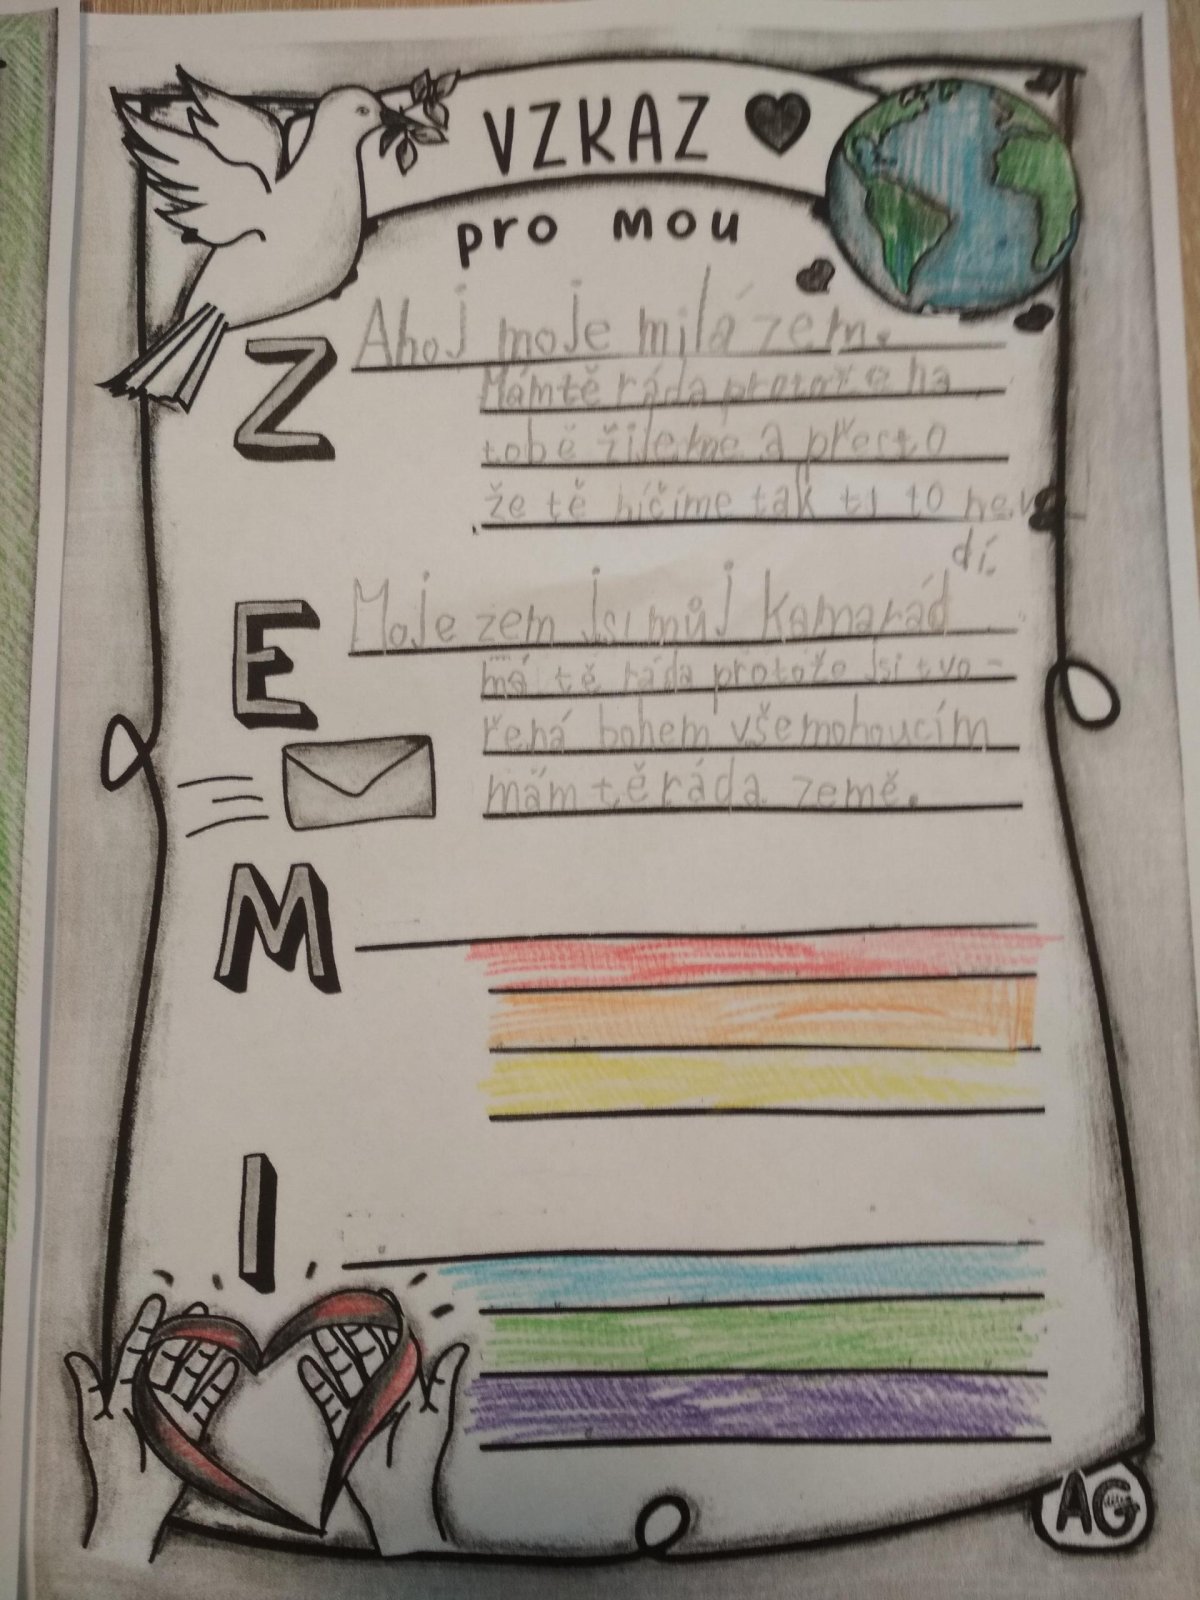 VZKAZ
pro mou
Z
Ahoj moje milá zem.
Mám tě ráda protože na
tobě žijeme a přesto
že tě ničíme tak ti to neva
dí.
E
Moje zem jsi můj kamarád
má tě ráda protože jsi tvo-
řená bohem všemohoucím
mám tě ráda země.
M
I
AG